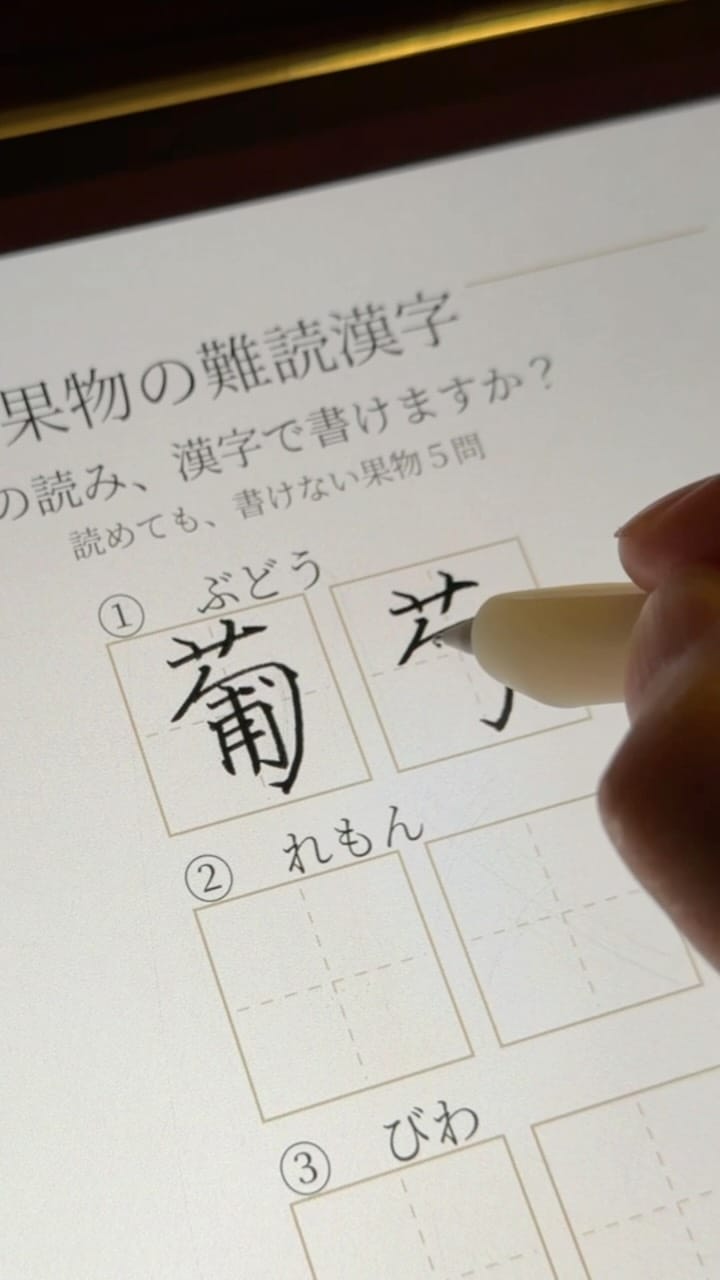 果物の難読漢字
の読み、漢字で書けますか？
読めても、書けない果物５問
① ぶどう
葡
② れもん
③ びわ